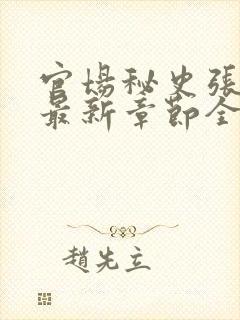 官場秘史張
最新章節全
趙先立